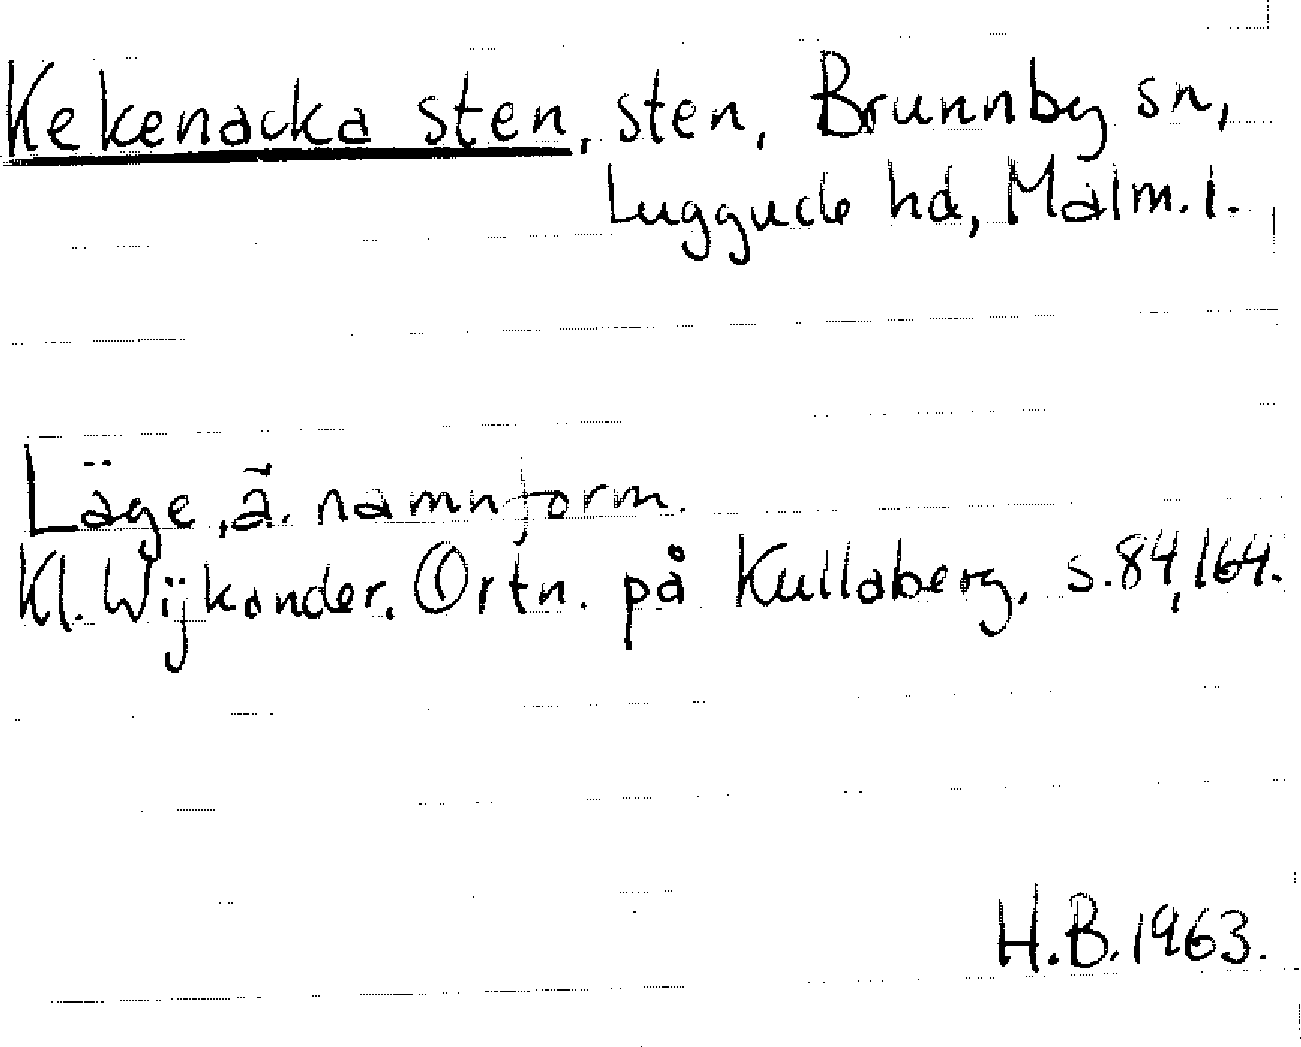 Kekenacka sten, sten, Brunnby sn,
Luggude hd, Malm. l.
Läge, ä. namnform.
Kl. Wijkander. Ortn. på Kullaberg, s. 84, 164.
H.B. 1963.